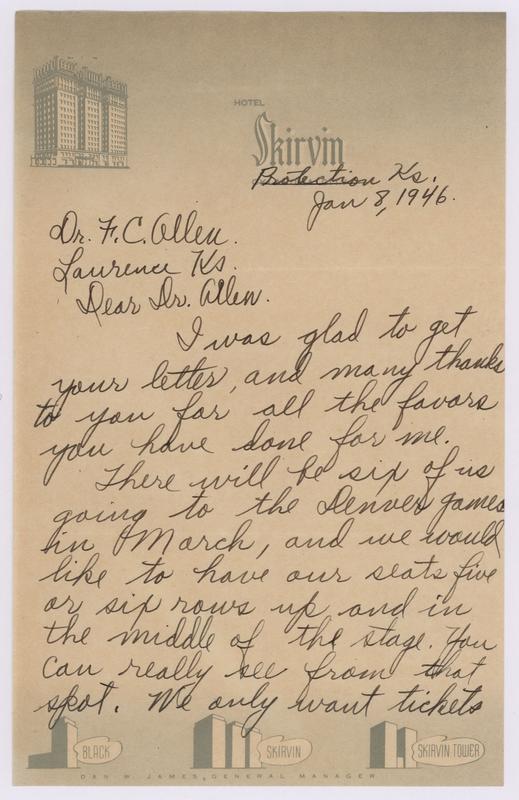 HOTEL
Skirvin
Protection Ks.
Jan 8, 1946.
Dr. F. C. Allen.
Laurence Ks.
Dear Dr. Allen.
I was glad to get
your letter, and many thanks
to you for all the favors
you have done for me.
There will be six of us
going to the Denver games
in March, and we would
like to have our seats five
or six rows up and in
the middle of the stage. You
can really see from that
spot. We only want tickets
BLACK
SKIRVIN
SKIRVIN TOWER
DAN W. JAMES, GENERAL MANAGER